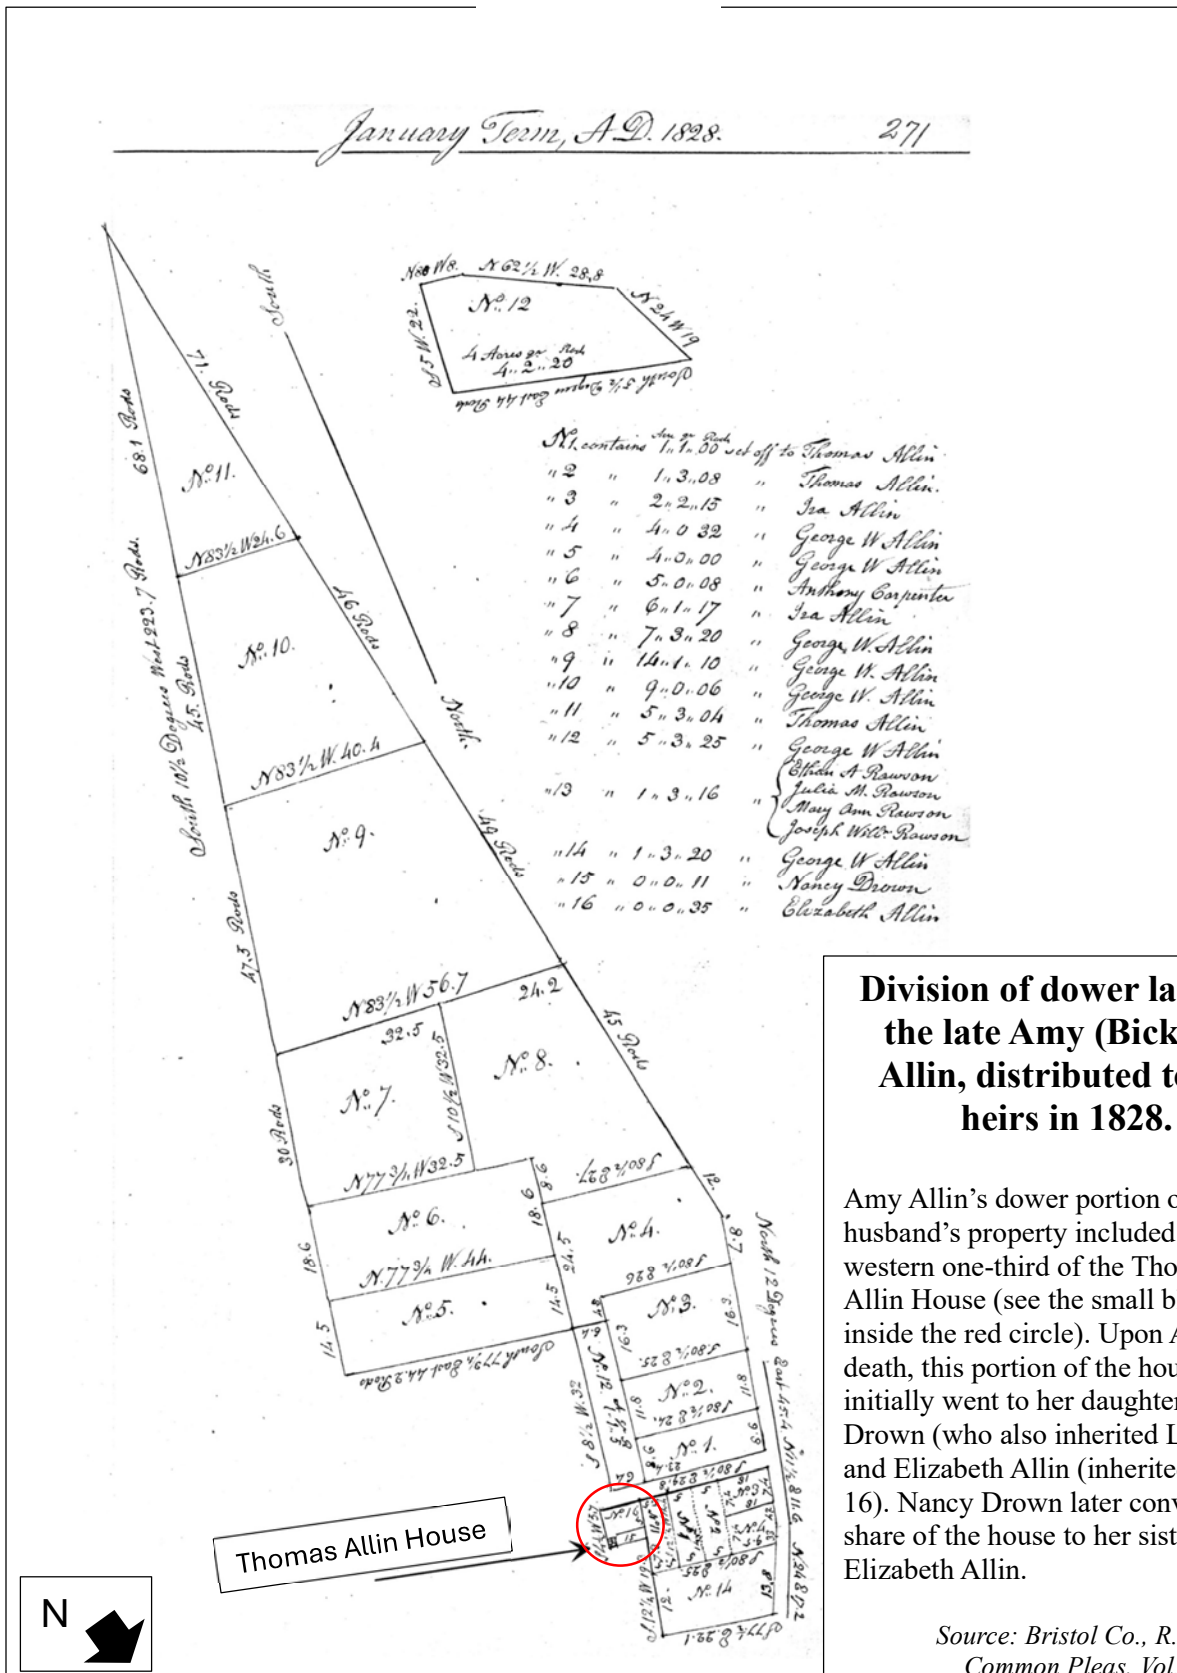 January Term, A.D. 1828. 271
N 80 W 8. N 62 1/2 W. 28,8
N 24 W 19
S 5 W. 22.
No. 12
4 Acres qr Rods
4 .. 2 .. 20
South 5 1/2 Degrees East 44 Rods
South
North.
71 Rods
68.1 Rods
No. 11.
N 83 1/2 W 24.6
46 Rods
South 10 1/2 Degrees West 223.7 Rods.
45. Rods
No. 10.
N 83 1/2 W. 40.4
49 Rods
No. 9.
47.5 Rods
N 83 1/2 W 56.7
32.5
24.2
45 Rods
No. 7.
S 10 1/2 W 32.5
No. 8.
30 Rods
N 77 3/4 W 32.5
S 80 1/2 E 27.
12.
8.6
18.6
No. 6.
No. 4.
18.6
N. 77 3/4 W. 44.
24.5
S 80 1/2 E 26
8.7
No. 5.
14.5
14.5
No. 3.
16.3
16.3
South 77 3/4 East 44.2 Rods
S 80 1/2 E 25.
No. 2.
11.8
11.8
S 80 1/2 E 24.
No. 1.
S 8 1/2 W. 32
S 80 1/2 E 29.8
North 12 Degrees East 45.4
No. 14
12.
S 77 1/2 E. 22.1
No. 1. contains Acre qr Rods 1 .. 1 .. 00 set off to Thomas Allin
" 2 " 1 .. 3 .. 08 " Thomas Allin.
" 3 " 2 .. 2 .. 15 " Ira Allin
" 4 " 4 .. 0 32 " George W Allin
" 5 " 4 .. 0 .. 00 " George W Allin
" 6 " 5 .. 0 .. 08 " Anthony Carpenter
" 7 " 6 .. 1 .. 17 " Ira Allin
" 8 " 7 .. 3 .. 20 " George W. Allin
" 9 " 14 .. 1 .. 10 " George W. Allin
" 10 " 9 .. 0 .. 06 " George W. Allin
" 11 " 5 .. 3 .. 04 " Thomas Allin
" 12 " 5 .. 3 .. 25 " George W Allin
Ethan A Rawson
" 13 " 1 .. 3 .. 16 " Julia M. Rawson
Mary Ann Rawson
Joseph Willm Rawson
" 14 " 1 .. 3 .. 20 " George W Allin
" 15 " 0 .. 0 .. 11 " Nancy Drown
" 16 " 0 .. 0 .. 35 " Elizabeth Allin
Division of dower la
the late Amy (Bick
Allin, distributed t
heirs in 1828.
Amy Allin’s dower portion o
husband’s property included
western one-third of the Tho
Allin House (see the small b
inside the red circle). Upon A
death, this portion of the hou
initially went to her daughter
Drown (who also inherited L
and Elizabeth Allin (inherite
16). Nancy Drown later conv
share of the house to her sist
Elizabeth Allin.
Source: Bristol Co., R.
Common Pleas, Vol
Thomas Allin House
N